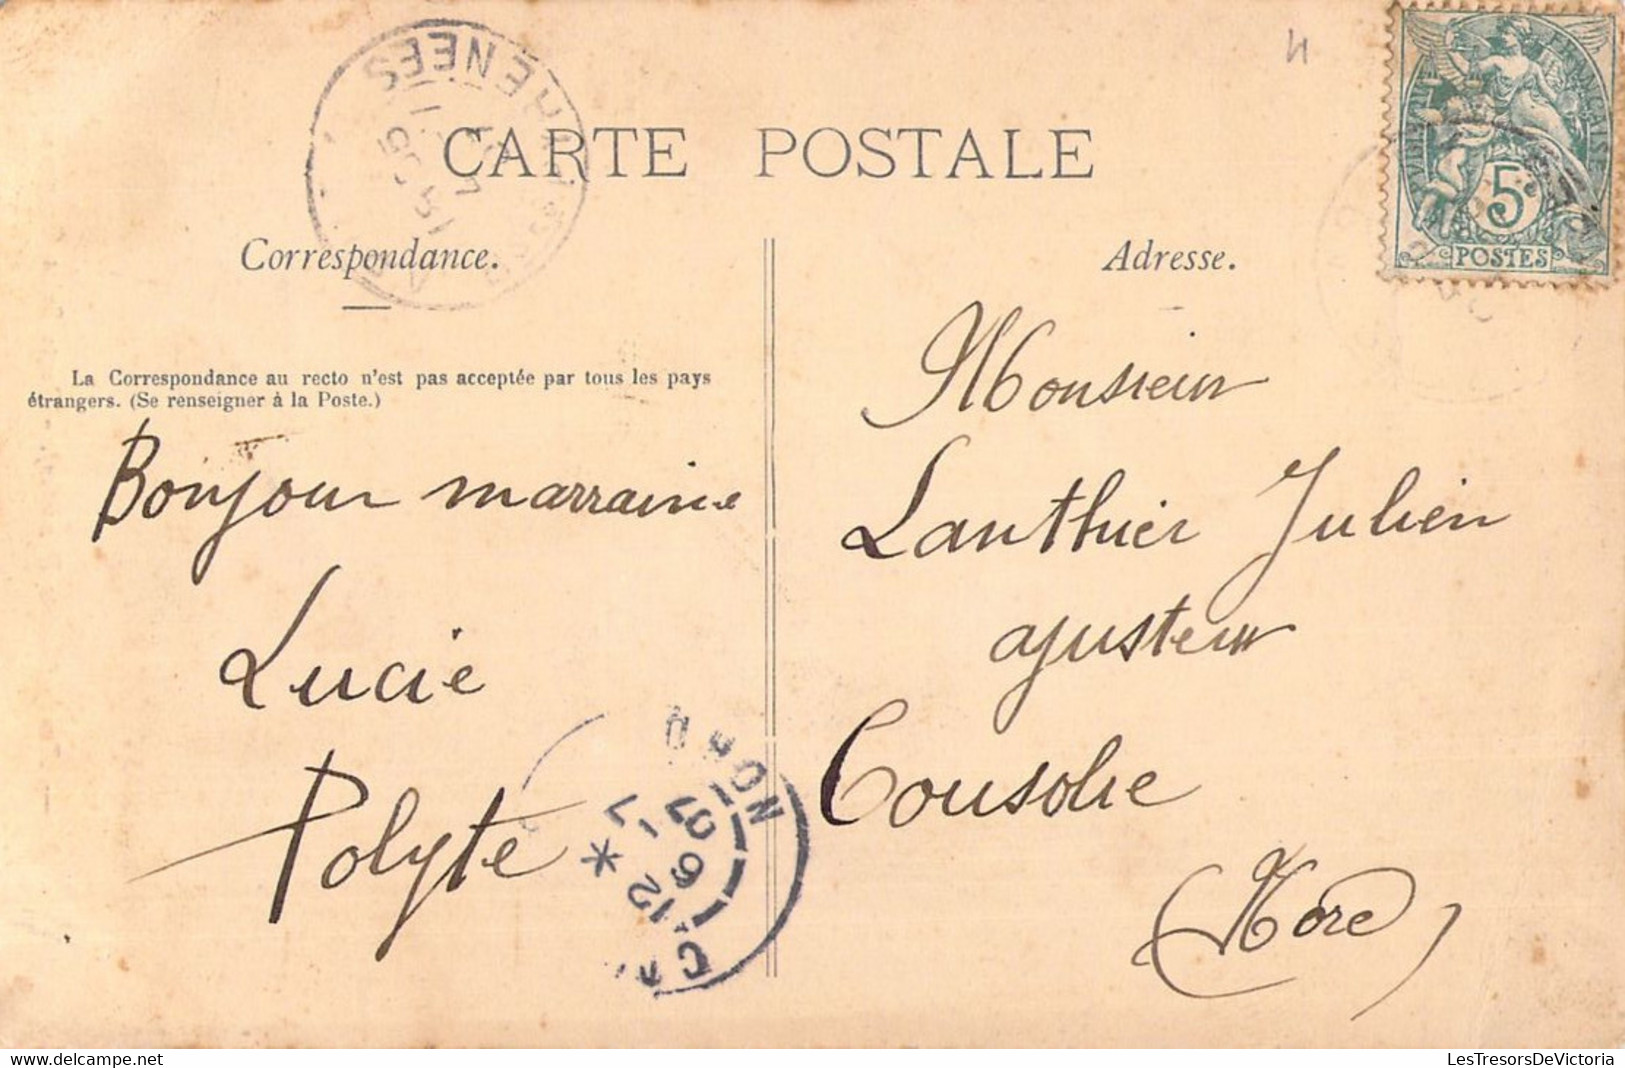 CARTE POSTALE
Correspondance.
Adresse.
La Correspondance au recto n'est pas acceptée par tous les pays
étrangers. (Se renseigner à la Poste.)
Bonjour marraine
Lucie
Polyte
Monsieur
Lanthier Julien
ajusteur
Cousolre
(Nord)
5
POSTES
NORD
12
6
07
LesTresorsDeVictoria